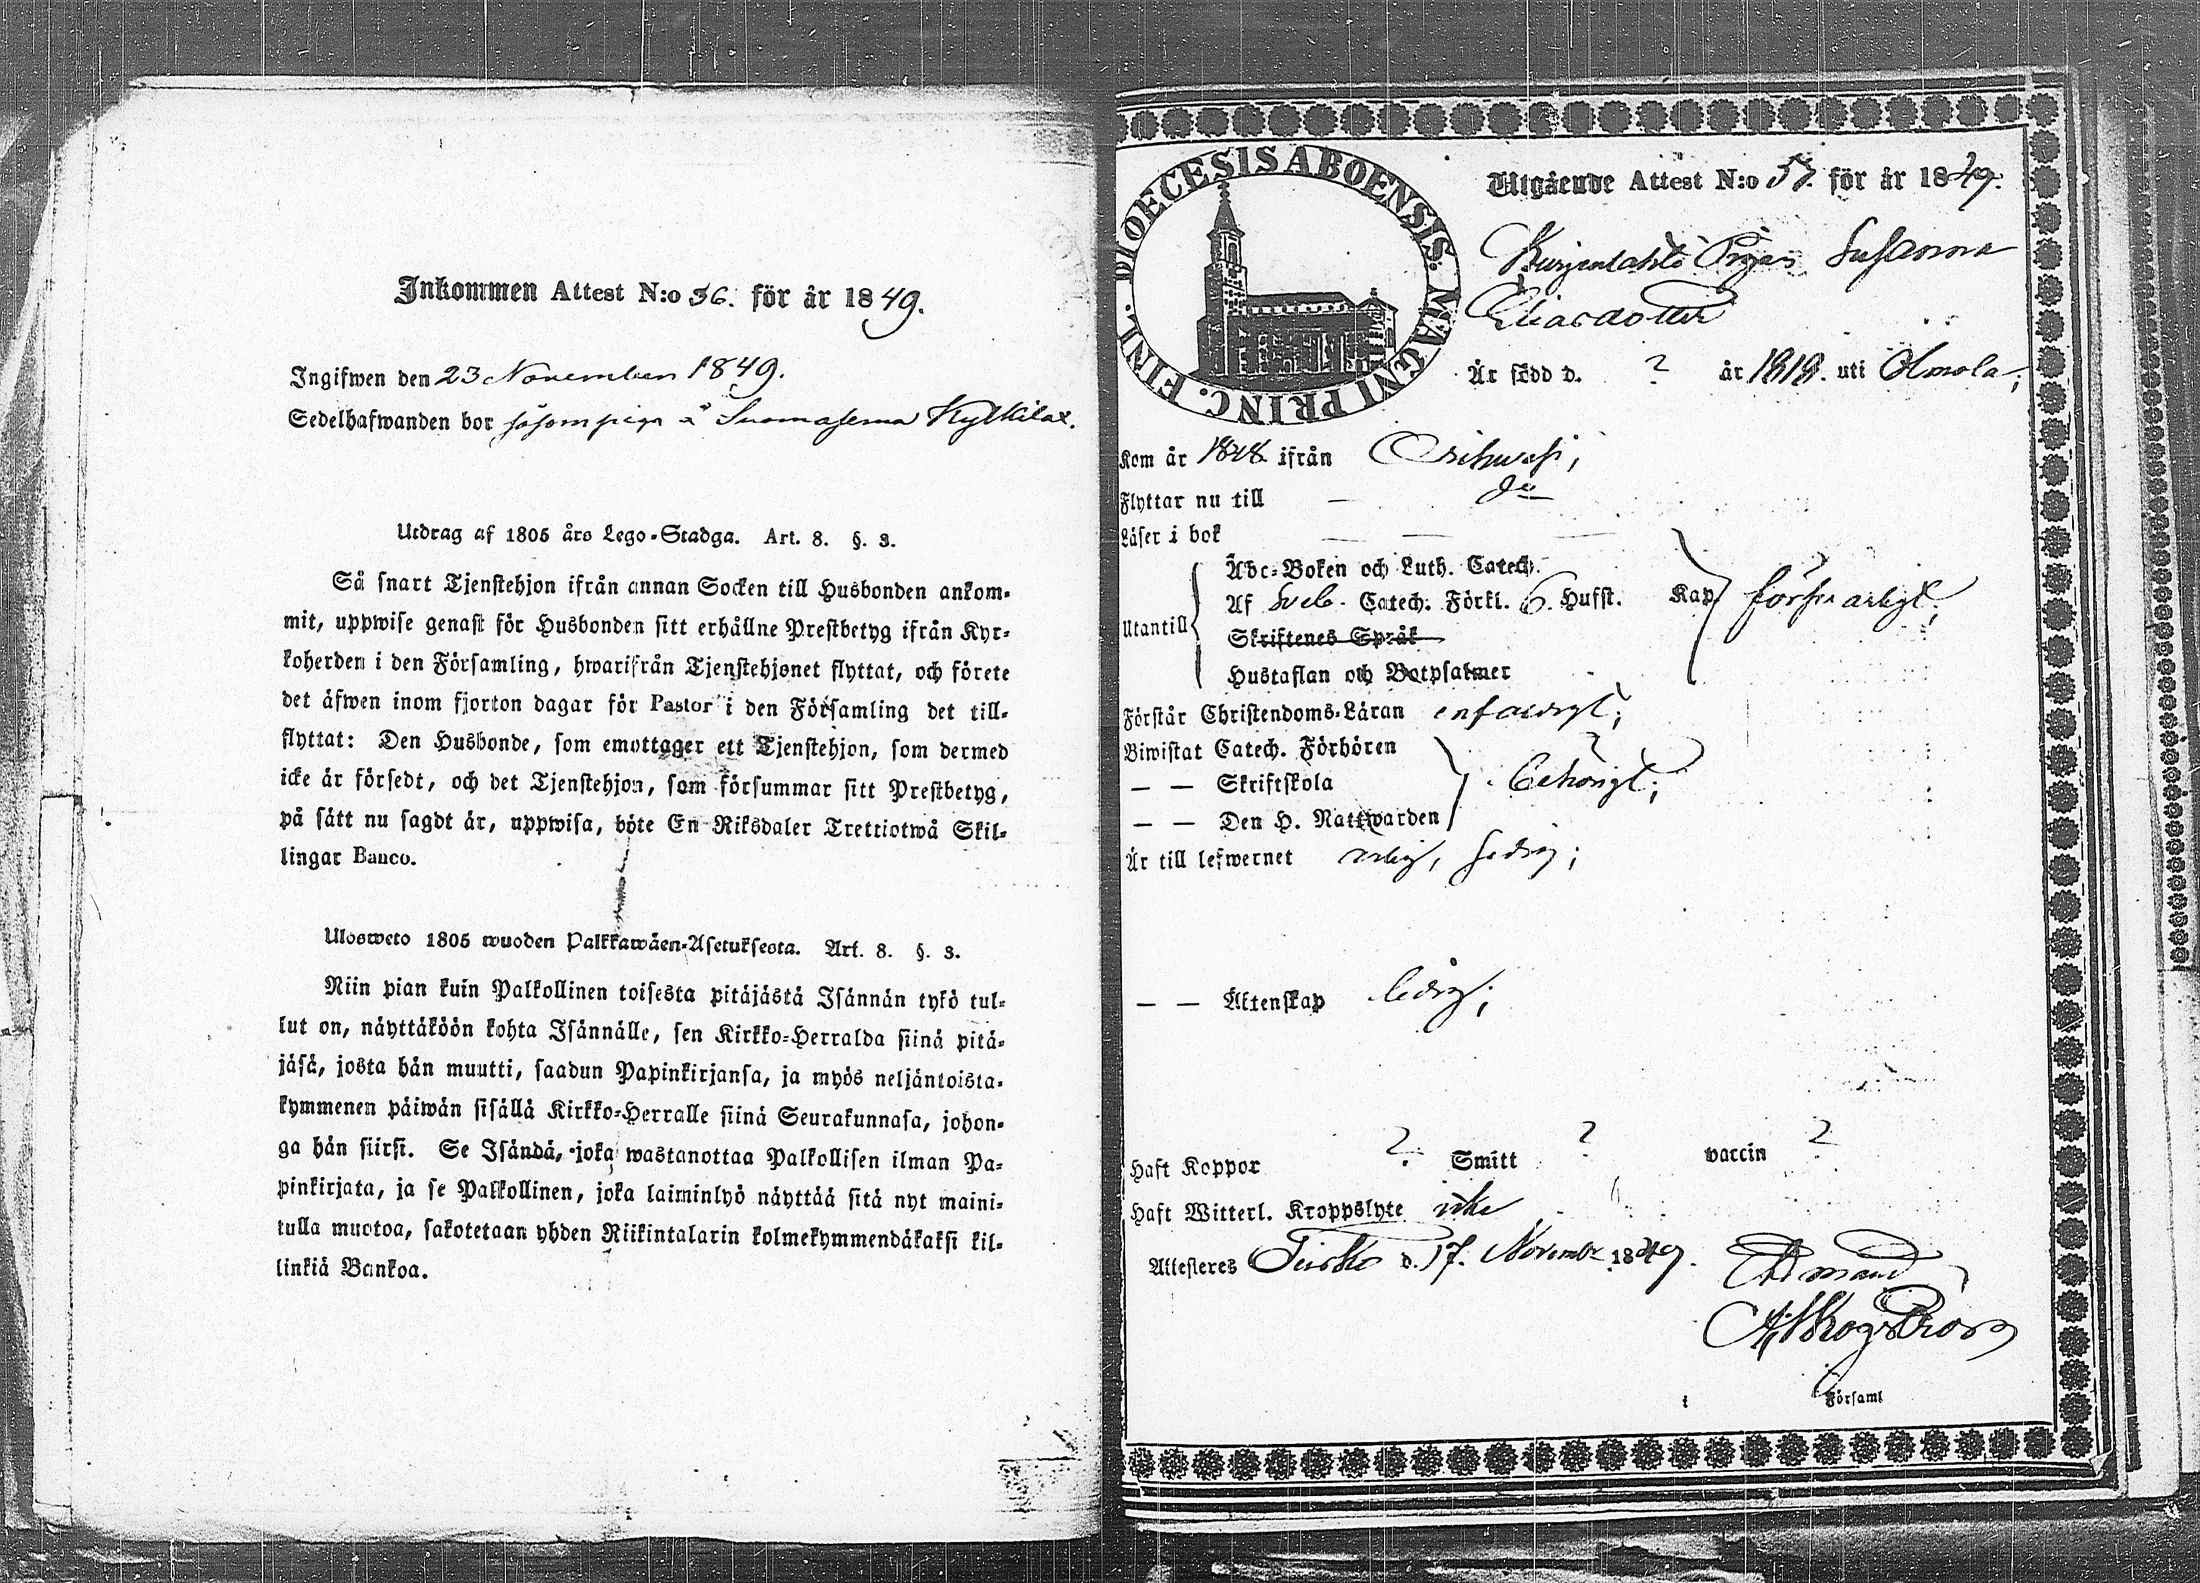 Inkommen Attest N:o 56. för år 1849.
Ingifwen den 23 November 1849.
Sedelhafwanden bor såsom piga å Suomasema Kylkilax.
Utdrag af 1805 års Lego-Stadga. Art. 8. §. 3.
Så snart Tjenstehjon ifrån annan Socken till Husbonden ankom-
mit, uppwise genast för Husbonden sitt erhållne Prestbetyg ifrån Kyr-
koherden i den Församling, hwarifrån Tjenstehjonet flyttat, och förete
det äfwen inom fjorton dagar för Pastor i den Församling det till-
flyttat: Den Husbonde, som emottager ett Tjenstehjon, som dermed
icke är försedt, och det Tjenstehjon, som försummar sitt Prestbetyg,
på sätt nu sagdt är, uppwisa, böte En Riksdaler Trettiotwå Skil-
lingar Banco.
Ulosweto 1805 wuoden Palkkawäen-Asetuksesta. Art. 8. §. 3.
Niin pian kuin Palkollinen toisesta pitäjästä Isännän tykö tul-
lut on, näyttäköön kohta Isännälle, sen Kirkko-Herralda siinä pitä-
jäsä, josta hän muutti, saadun Papinkirjansa, ja myös neljäntoista-
kymmenen päiwän sisällä Kirkko-Herralle siinä Seurakunnasa, johon-
ga hän siirsi. Se Isändä, joka wastanottaa Palkollisen ilman Pa-
pinkirjata, ja se Palkollinen, joka laiminlyö näyttää sitä nyt maini-
tulla muotoa, sakotetaan yhden Riikintalarin kolmekymmendäkaksi kil-
linkiä Bankoa.
DIOECESIS ABOENSIS. MAGNI PRINC. FINL.
Utgående Attest N:o 57. för år 1849.
Kurjenlahti Pigan Susanna
Eliasdotter
Är född d. ? år 1818. uti Ulmola;
Kom år 1848 ifrån Orihwesi;
Flyttar nu till — do
Läser i bok — — —
Abc-Boken och Luth. Catech.
Utantill Af Sveb. Catech. Förkl. 6. Hufst. Kap försvarligt;
Skriftenes Språk
Hustaflan och Botpsalmer
Förstår Christendoms-Läran enfaldigt;
Biwistat Catech. Förhören
— — Skriftskola behörigt;
— — Den H. Nattwarden
Är till lefwernet ärlig, sedig;
— — Äktenskap ledig;
Haft Koppor ? Smitt ? vaccin ?
Haft Witterl. Kroppslyte icke
Attesteras Teisko d. 17. Novembr 1849.
A. Skogström
i Församl